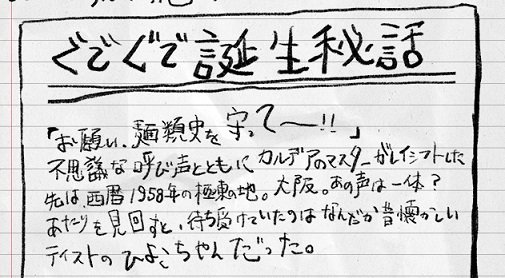 ぐでぐで誕生秘話
「お願い、麺類史を守って〜!!」
不思議な呼び声とともにカルデアのマスターがレイシフトした
先は西暦1958年の極東の地。大阪。あの声は一体?
あたりを見回すと、待ち受けていたのはなんだか昔懐かしい
テイストのひよこちゃんだった。